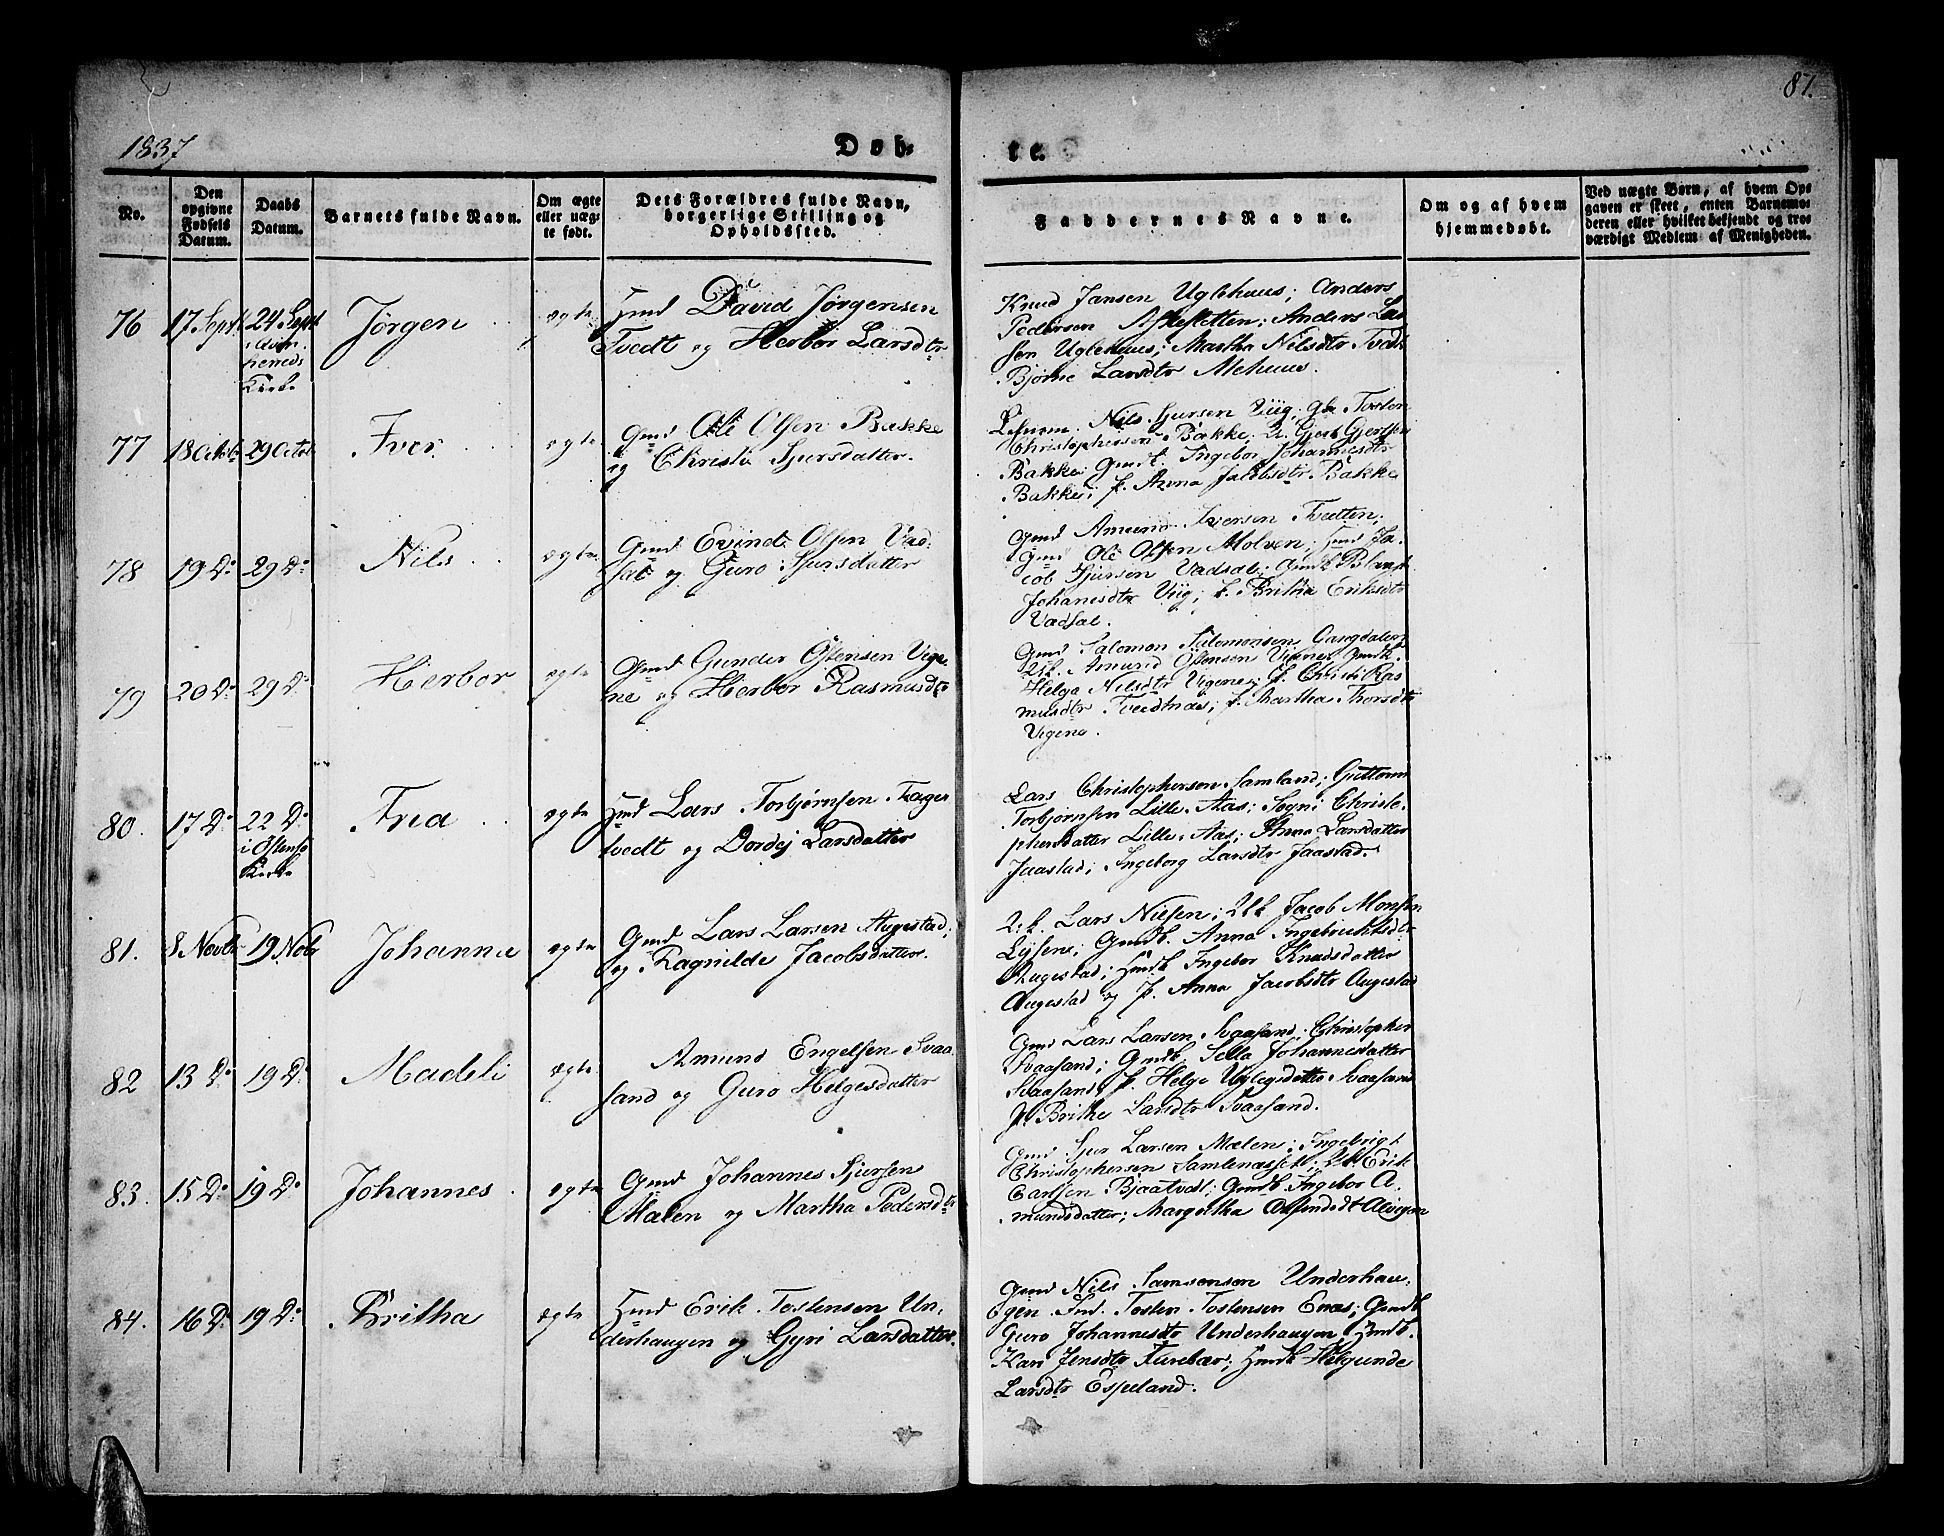 87.
1837
Døb- te.
No.
Den opgivne Fødsels Datum.
Daabs Datum.
Barnets fulde Navn.
Om ægte eller uæg- te født.
Dets Forældres fulde Navn, borgerlige Stilling og Opholdssted.
Faddernes Navne.
Om og af hvem hjemmedøbt.
Ved uægte Børn, af hvem Op- gaven er skeet, enten Barnemo- deren eller hvilket bekjendt og tro- værdigt Medlem af Menigheden.
76 17 Septb 24 Sept Jørgen ægte
Kirke
Hmd David Jørgensen
Tvedt og Herbor Larsdtr
Knud Jansen Uglehuus; Anders
Pedersen; Anders Lar
sen Uglehuus; Martha Nilsdtr Tvedt
Larsdtr Mehuus.
77 18 Octbr 29 Octbr Iver ægte
Gmd Ole Olsen Bakke
og Christi Sjursdatter.
Nils Sjursen Viig; Tosten
Christophersen Bakke; Gjert Gjertsen
Bakke; Gmdk. Ingebor Johannesdtr
Bakke; p. Anna Jacobsdtr Bakke
78 19 Do 29 Do Nils ægte
Gmd Evind Olsen Vad-
sal og Guro Sjursdatter
Gmd Amund Iversen Tvetten;
Gmd Ole Olsen Molven; Hmd Ja-
cob Sjursen Vadsal; Gmdk
Johanesdtr Viig; p. Britha Eriksdtr
Vadsal.
79 20 Do 29 Do Herbor ægte
Gmd Gunder Østensen Vige-
ne og Herbor Rasmusdtr
Gmd Salomon Salomonsen Gangdalen
Uk. Amund Østensen Vigene; Gmdk.
Helga Nilsdtr Vigene; p. Christi Ras
musdtr Tvedtnæs; p. Martha Thorsdtr
Vigene.
80. 17 Do 22 Do ægte
i Østensø
Kirke
Hmd Lars Torbjørnsen Fager
tvedt og Dordej Larsdatter
Lars Christophersen Samland; Guttorm
Torbjørnsen Lille-Aas; Sygni Christo-
phersdatter Lille-Aas; Anna Larsdatter
Jaastad; Ingeborg Larsdtr Jaastad.
81. 8 Novbr 19 Novbr Johanna ægte
Gmd Lars Larsen Augestad;
og Ragnilde Jacobsdatter.
U.k. Lars Nilsen; U.k. Jacob Monsen
Lysene; Gmdk. Anna Ingebrichtsdtr
Augestad; Hmdk Ingebor Knudsdatter
Augestad og p. Anna Jacobsdtr Augestad
82 13 Do 19 Do Madeli ægte
Amund Engelsen Svaa
sand og Guro Helgesdatter
Gmd Lars Larsen Svaasand; Christopher
Svaasand; Gmdk. Sella Johannesdatter
Svaasand; p. Helga
p. Brithe Larsdtr Svaasand.
83. 15 Do 19 Do Johannes ægte
Gmd Johannes Sjursen
Mælen og Martha Pedersdtr
Gmd Sjur Larsen Mælen; Ingebrigt
Christophersen; U.k. Erik
Carlsen; Gmdk. Ingebor A-
mundsdatter; Margretha
84. 16 Do 19 Do Britha ægte
Hmd Erik Tostensen Un-
derhaugen og Gyri Larsdatter.
Gmd Nils Samsonsen Underhau-
gen. Tosten Tostensen Enæs; Gmdk
Guro Johannesdtr Underhaugen; Hmdk.
Kari Jensdtr Furebær; Hmdk Helgunde
Larsdtr Espeland.